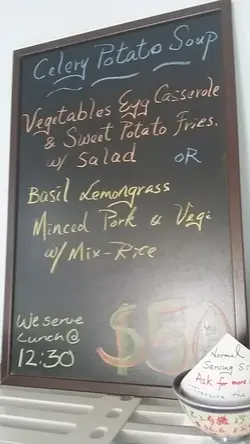 Celery Potato Soup
Vegetables Egg Casserole
& Sweet Potato Fries.
w/ Salad OR
Basil Lemongrass
Minced Pork & Vegi
w/ Mix-Rice
We serve
Lunch @
12:30
$5
Normal
Serving Si
Ask for more